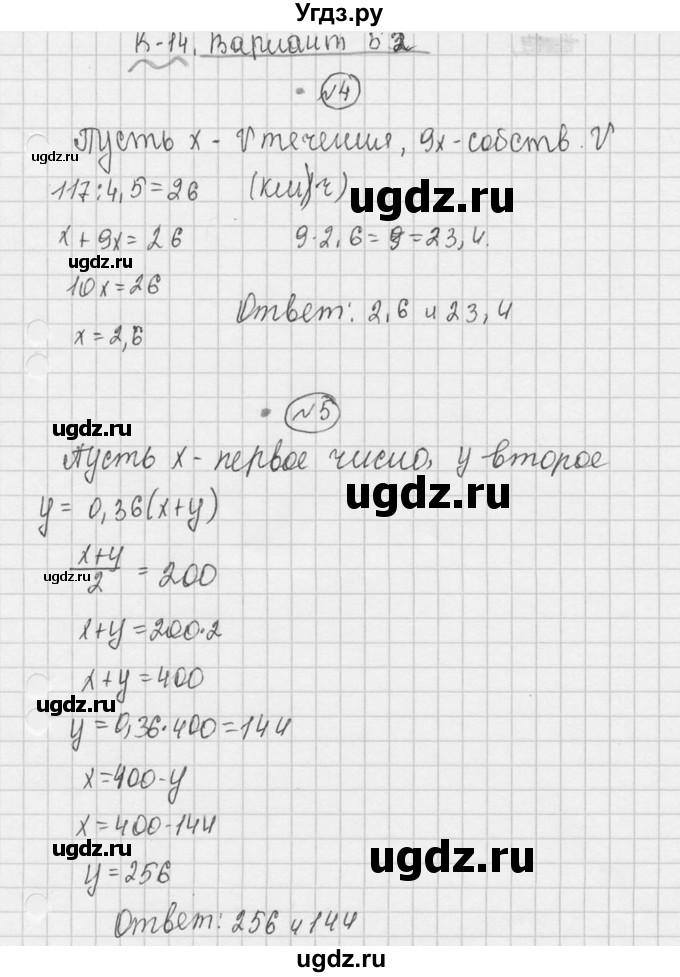 Угдз.ру
К-14. Вариант Б 2
№4
Пусть x - V течения, 9x - собств. V
ugdz.ru
117:4,5=26 (км/ч)
ugdz.ru
x+9x=26 9·2,6=9=23,4.
ugdz.ru
10x=26
Ответ: 2,6 и 23,4
x=2,6
ugdz.ru
№5
ugdz.ru
Пусть x - первое число, y второе
ugdz.ru
y= 0,36(x+y)
x+y
ugdz.ru
2 = 200
x+y=200·2
x+y=400
ugdz.ru
ugdz.ru
y=0,36·400=144
x=400-y
x=400-144
ugdz.ru
ugdz.ru
y=256
Ответ: 256 и 144
ugdz.ru